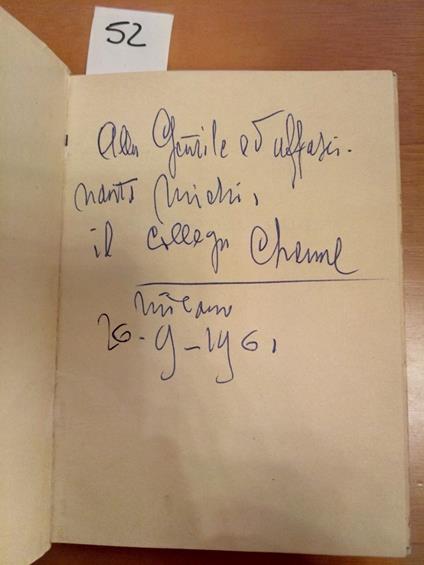 52
Alla Gentile ed affasci-
nante Michi,
il collega
Milano
26-9-1961